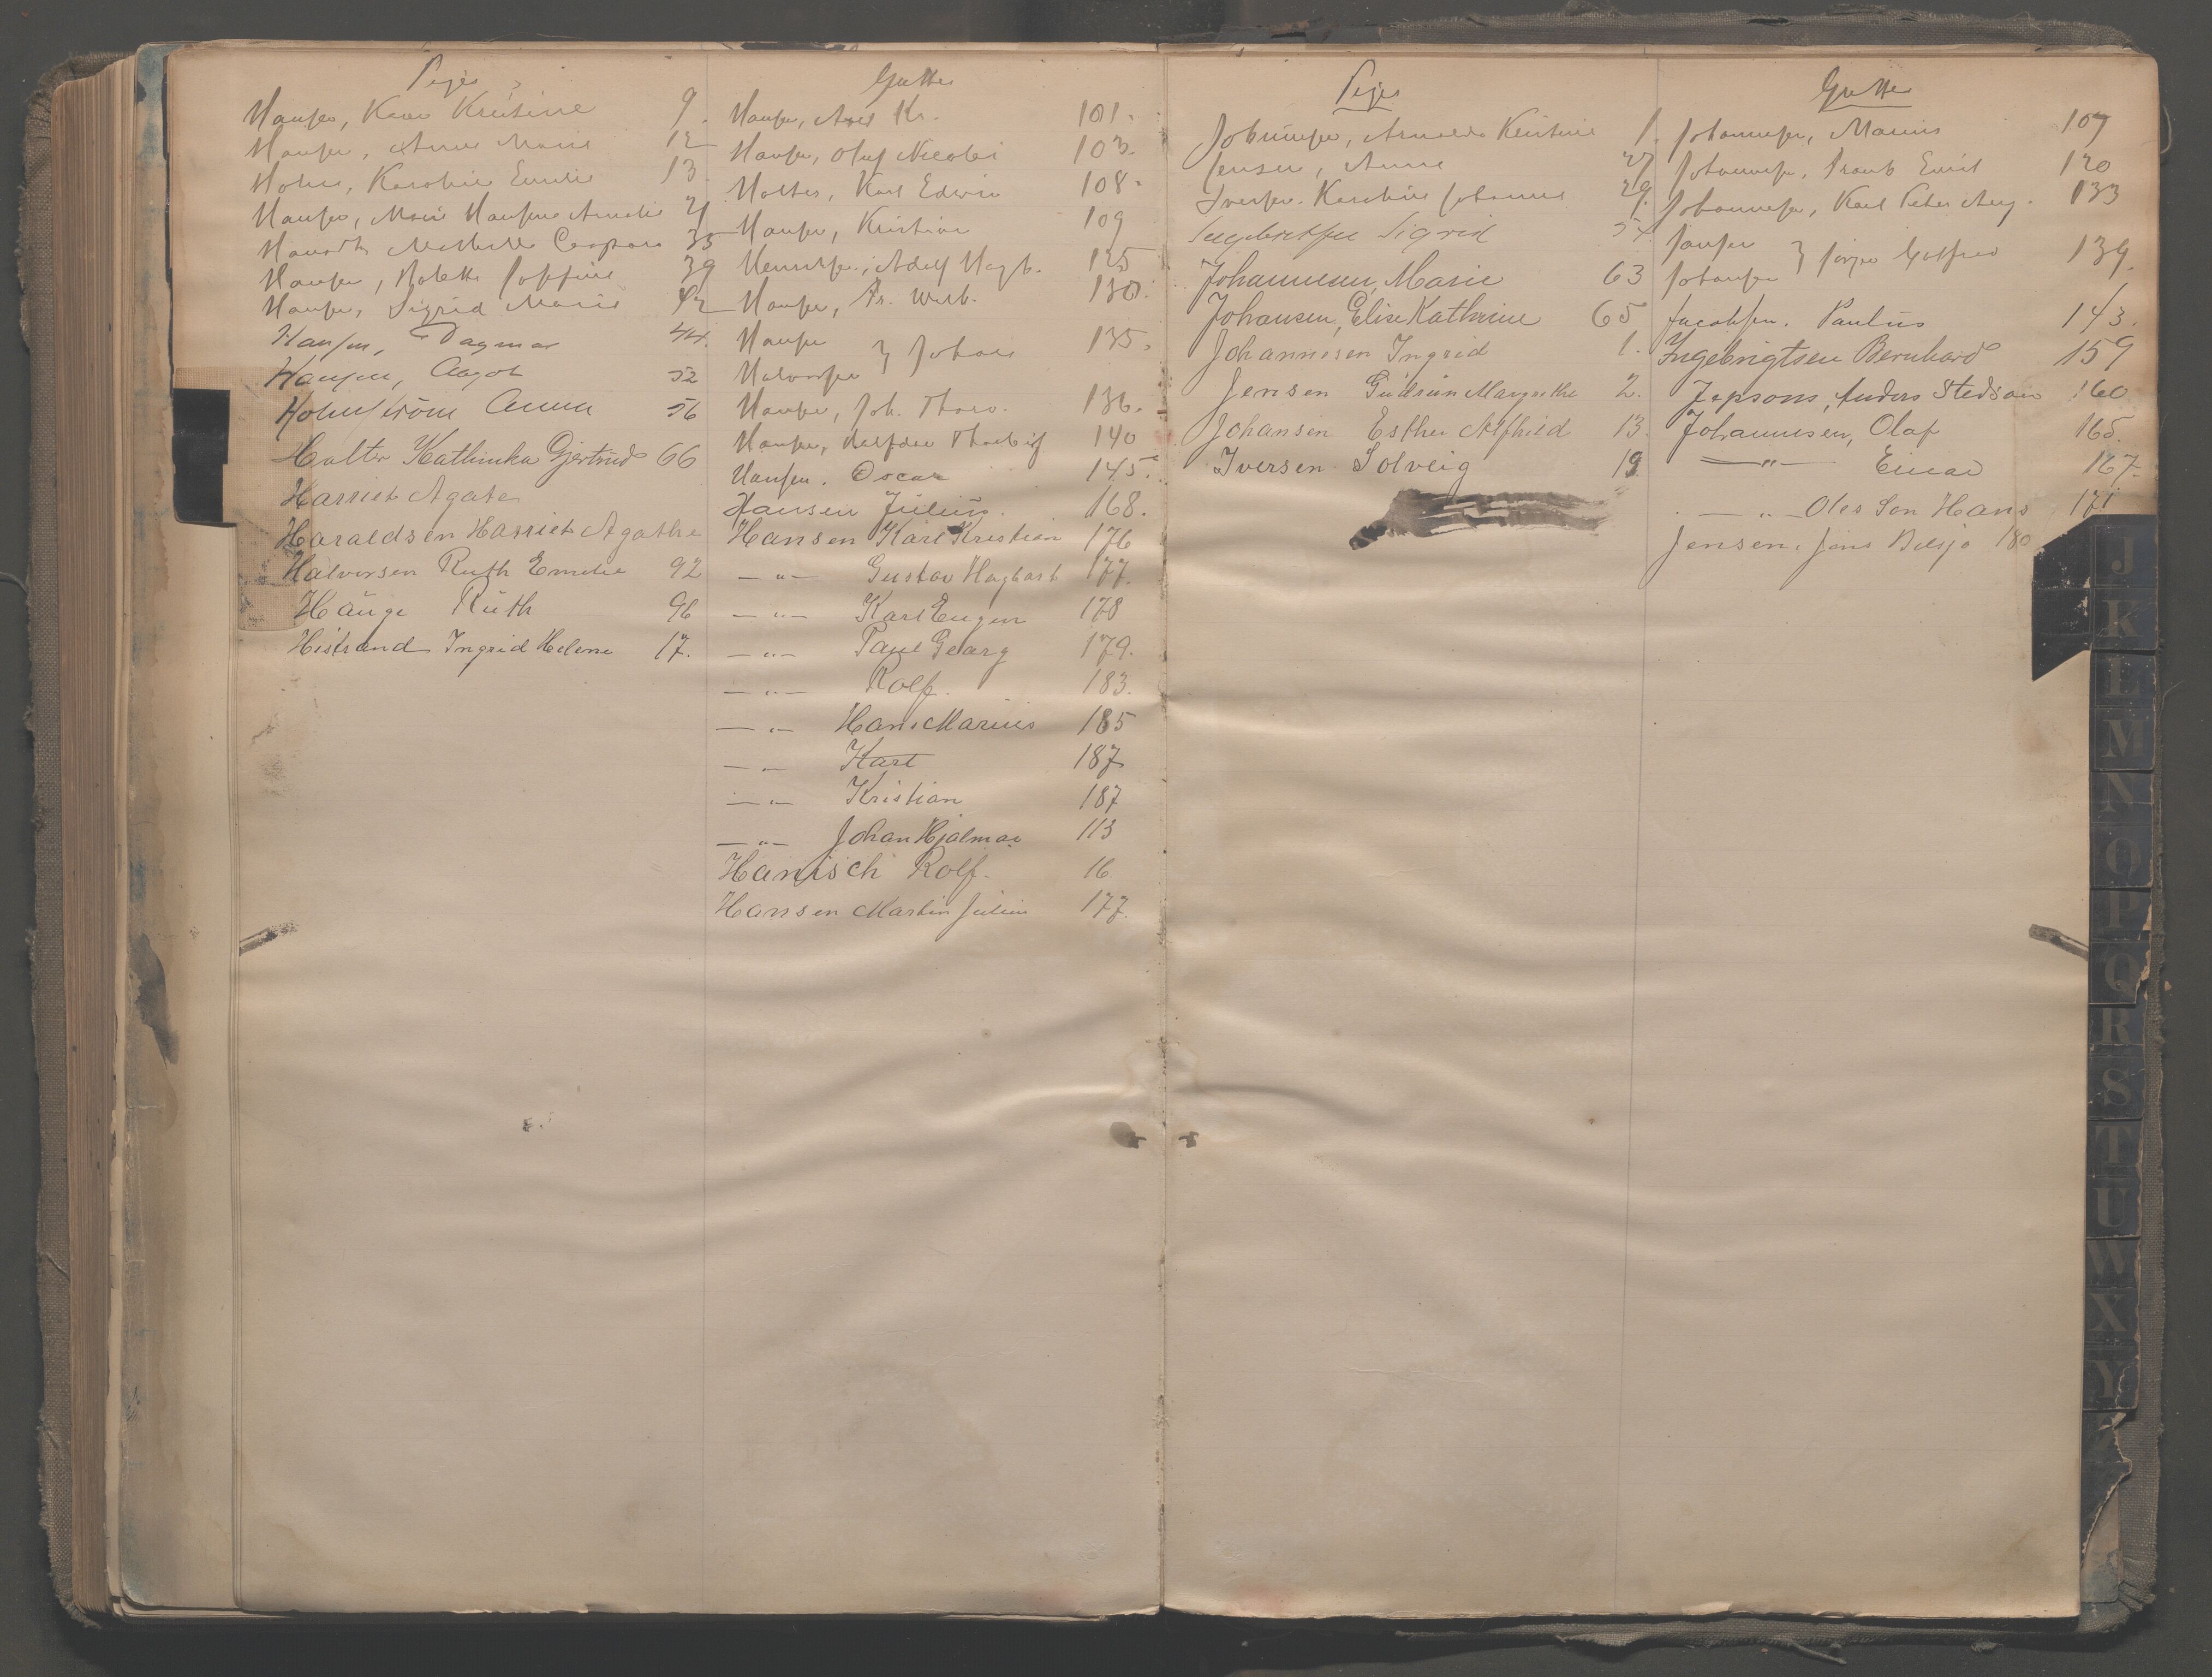 Piger
Hansen, Kristine 9.
Hansen, Anna Marie 12
Holm, Karoline Emilie 13.
Hansen, Marie Amalie 21
35
Hansen, Josefine 39
Hansen, Sigrid Marie 42
Hansen, Dagmar 44.
Hansen, Aagot 52
Holmström Anna 56
Holter Kathinka Gjertrud 66
Harriet Agate
Haraldsen Harriet Agathe
Halvorsen Ruth Emelie 92
Hauge Ruth 96
Histrand Ingrid Helene 17.
Gutter
Hansen, Axel Kr. 101.
Hansen, Oluf Nicolai 103.
Holter, Karl Edwin 108.
Hansen, Kristian 109
Henriksen, Adolf Hagb. 125
Hansen, Fr. Wilh. 130.
Hansen
Halvorsen } Johan 135.
Hansen, Joh. 136.
Hansen, 140
Hansen. Oscar 145.
Hansen Julius. 168.
Hansen Karl Kristian 176
—"— Gustav Hagbart 177.
—"— Karl Eugen 178
—"— Paul Georg 179.
—"— Rolf. 183.
—"— Hans Marius 185
—"— Karl 187
—"— Kristian 187
—"— Johan Hjalmar 113
Hanisch Rolf. 16
Hansen Martin Julius 177.
Piger
Johannesen, Kristine 1.
Jensen, Anna 27
Iversen. Karoline Johanne 29.
Ingebretsen Sigrid 54
Johannesen, Marie 63
Johansen, Elise Kathrine 65
Johannesen Ingrid 1.
Jensen Gudrun Margrethe 2.
Johansen Esther Alfhild 13.
Iversen Solveig 19
Gutter
Johannesen, Marius 107
Johannesen, Emil 120
Johannesen, Karl Peter Aug. 133
Jansen
Johansen } Gotfred 139.
Jacobsen. Paulus 143.
Ingebrigtsen Bernhard 159
Jepsons, Anders Stedsøn 160
Johannesen, Olaf 165.
—"— Einar 167.
—"— Oles Søn Hans 171
Jensen, Jens 180
J
K
L
M
N
O
P
Q
R
S
T
U
W
X
Y
Z